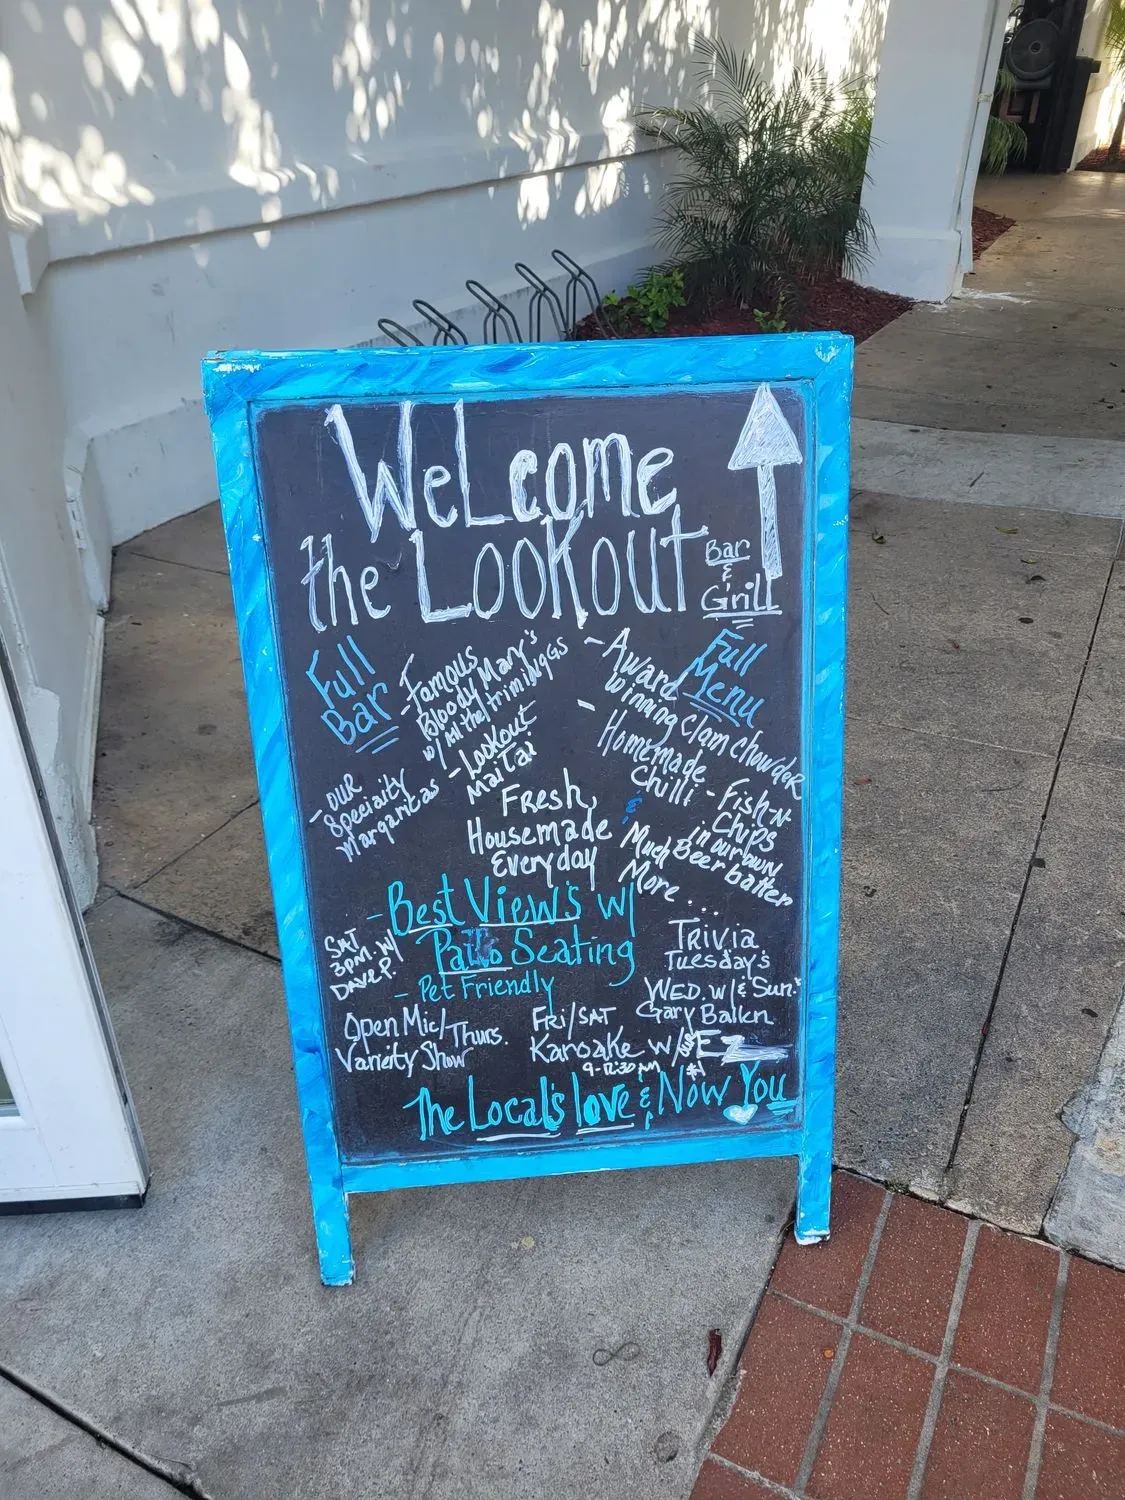 WeLcome
the LOOKOUT
Bar
&
Grill
Full
Bar
- Famous
Bloody Mary's
w/ All the trimings
- Lookout
Mai Tai
- OUR
Specialty
Margaritas
Full
Menu
- Award
winning Clam Chowder
- Homemade
Chilli
- Fish-N-
Chips
in our own
Beer batter
&
Much
More ...
Fresh,
Housemade
Everyday
- Best Views w/
Patio Seating
- Pet Friendly
SAT
3PM. w/
Dave P.
TRIVIA
Tuesday's
WED. w/ & Sun.
Gary Balkn
Open Mic/Thurs.
Variety Show
FRI/SAT
Karoake w/ EZ
9-12:30AM
#1
The Local's love & Now You